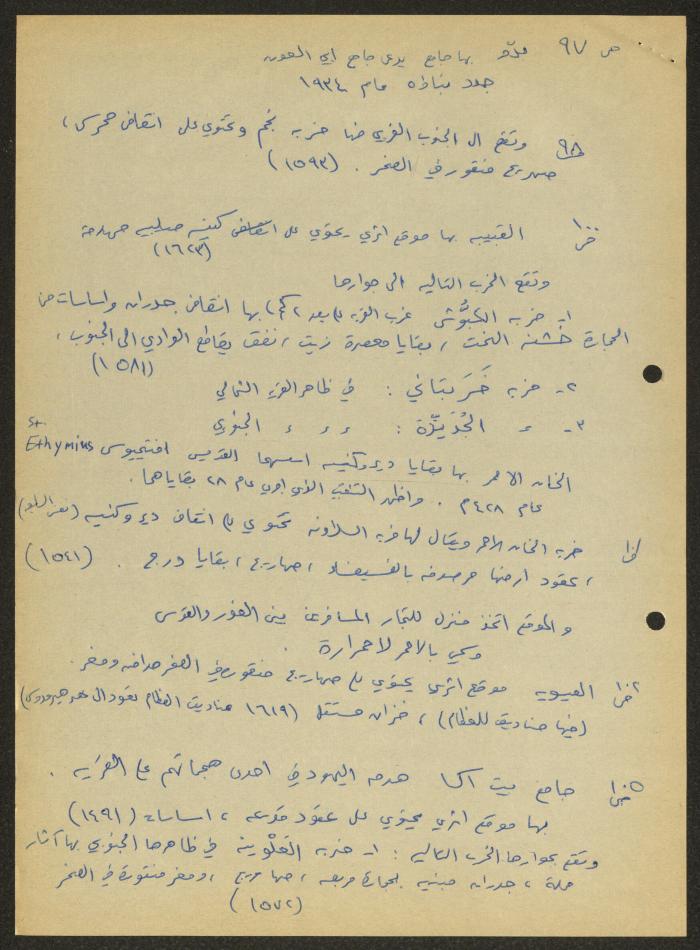 ص ٩٧ بها جامع يدعى جامع ابي العون
جدد بناؤه عام ١٩٣٤
ص ٩٨ وتقع الى الجنوب الغربي منها خربه نجم وتحتوي على انقاض ،
صهريج منقور في الصخر . (١٥٩٣)
القبيبه بها موقع اثري يحتوي على انقاض كنيسه صليبيه
(١٦٢٣)
وتقع الخرب التاليه الى جوارها
١- خربه الكبُّوش غرب القريه بها انقاض جدران واساسات من
الحجارة خشنه النحت ، بقايا معصرة زيت ، نفق يقاطع الوادي الى الجنوب ،
(١٥٨١)
٢- خربه : في ظاهر القريه الشمالي
٣- " الجُدَيِّدة : " " " الجنوبي
الخان الاحمر بها بقايا دير وكنيسه اسسها القديس افتيميوس St. Ethymius
عام ٤٢٨م . واظهر التنقيب الذي اجري عام ٢٨ بقاياهما .
خربه الخان الاحمر ويقال لها خربه تحتوي على انقاض دير وكنيسه
، عقود ارضها مرصوفه بالفسيفساء ، صهاريج ، بقايا درج . (١٥٤١)
والموقع اتخذ منزل للتجار المسافرين بين الغور والقدس
وسمي بالاحمر لاحمرارة
العيسويه موقع اثري يحتوي على صهاريج منقورة في الصخر ومغر
(فيها صناديق للعظام) ، خزان مستقل (١٦١٩ صناديق العظام تعود الى
جامع بيت اكسا هدمه اليهود في احدى هجماتهم على القريه .
بها موقع اثري يحتوي على عقود قديمه ، اساسات (١٤٩١)
وتقع بجوارها الخرب التاليه : ١- خربه العلاوينة في ظاهرها الجنوبي بها آثار
محلة ، جدران مبنيه بحجارة مربعه ، صهاريج ، ومغر منقورة في الصخر
(١٥٧٢)